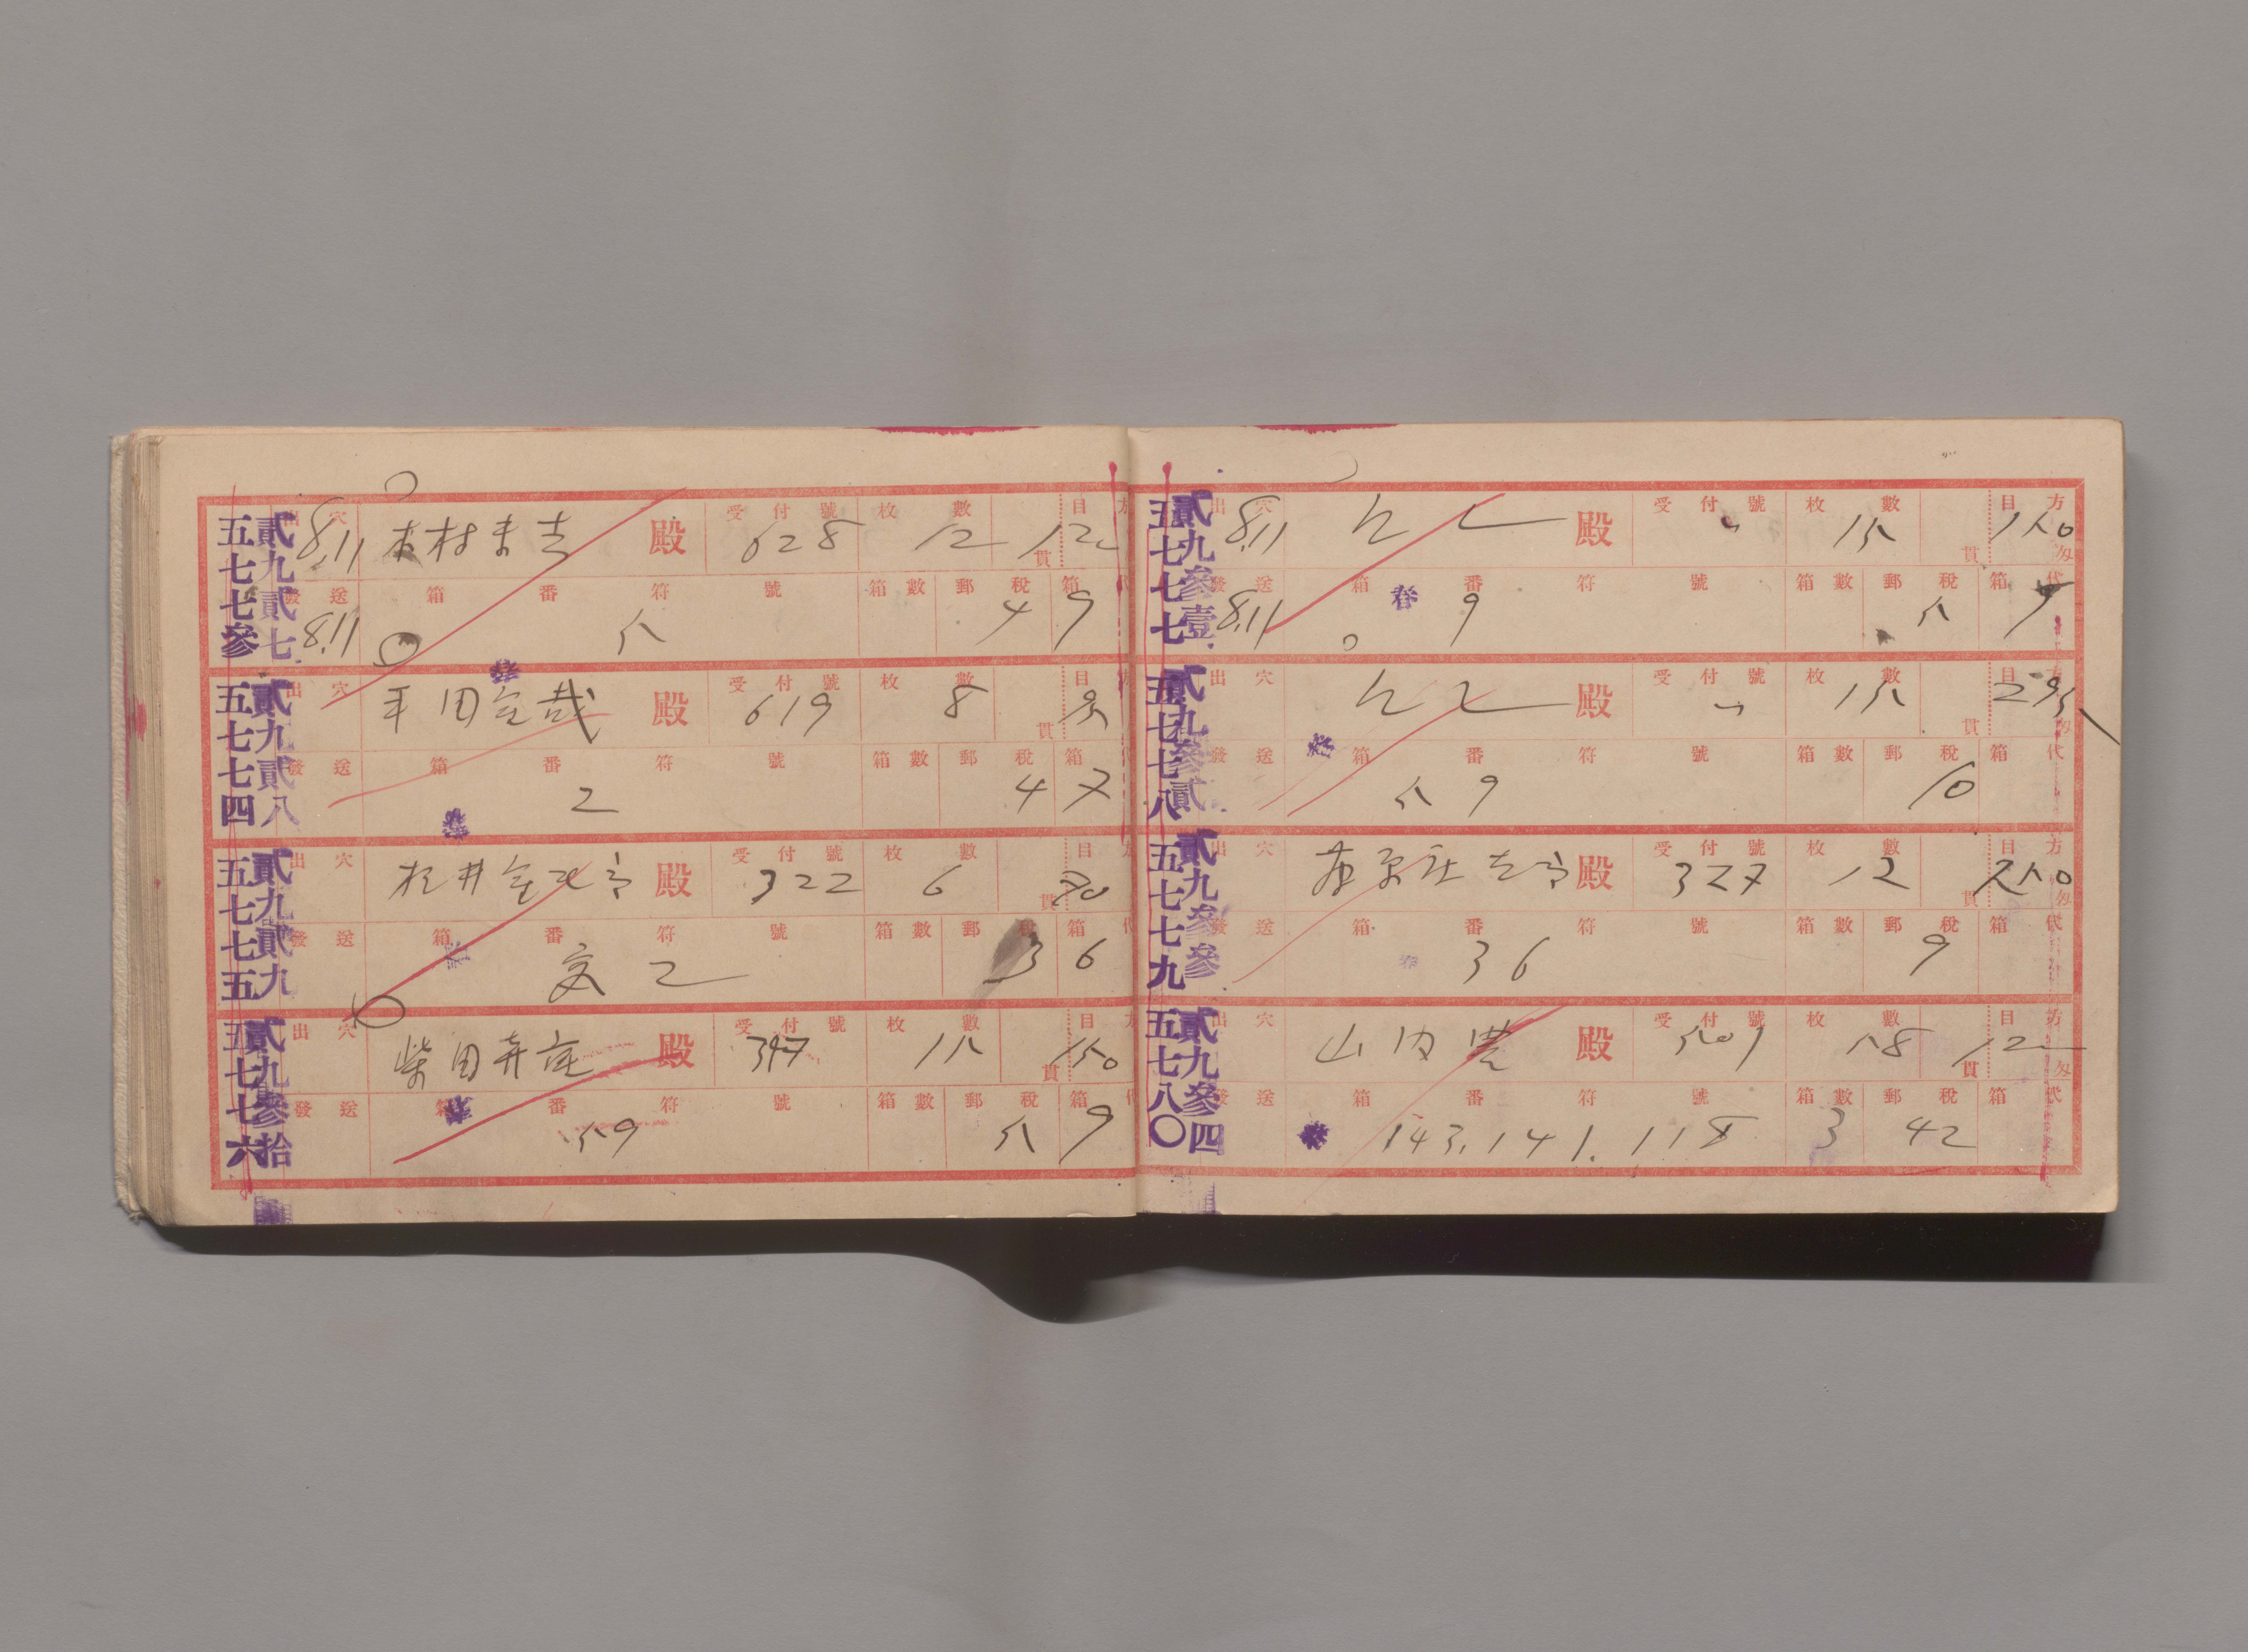 五七七參 貳九貳七
出穴 8.11 木村末吉 殿 受付號 628 枚數 12 貫目 12
發送 8.11 箱番符號 5 箱數 郵稅 4 箱 9
春
五七七四 貳九貳八
出穴 平田 哉 殿 受付號 619 枚數 8 貫目
發送 箱番符號 2 箱數 郵稅 4 箱 7
春
五七七五 貳九貳九
出穴 松井金 郎 殿 受付號 322 枚數 6 貫目 70
發送 箱番符號 乙 箱數 郵稅 3 箱 6
五七七六 貳九參拾
出穴 柴田 殿 受付號 347 枚數 15 貫目 150
發送 箱番符號 59 箱數 郵稅 5 箱 9
春
五七七七 貳九參壹
出穴 8.11 殿 受付號 〃 枚數 15 貫 目方 150 匁
發送 8.11 箱番符號 9 箱數 郵稅 5 箱代 9
春
五七七八 貳九參貳
出穴 殿 受付號 〃 枚數 15 貫 目方 295 匁
發送 箱番符號 59 箱數 郵稅 10 箱代
春
五七七九 貳九參參
出穴 原庄 郎 殿 受付號 327 枚數 12 貫 目方 250 匁
發送 箱番符號 36 箱數 郵稅 9 箱代
春
五七八〇 貳九參四
出穴 山内豊 殿 受付號 501 枚數 58 貫 目方 12 匁
發送 箱番符號 143.141.118 箱數 3 郵稅 42 箱代
春